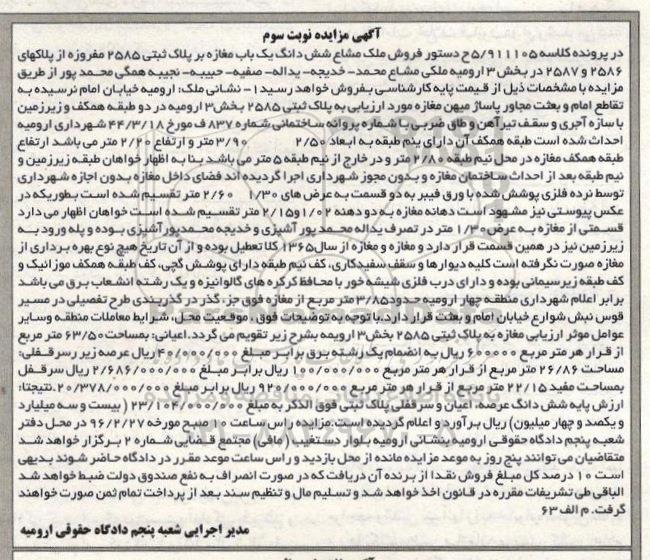 آگهی مزایده نوبت سوم
در پرونده کلاسه ۵/۹۱۱۱۰۵ح دستور فروش ملک مشاع شش دانگ یک باب مغازه بر پلاک ثبتی ۲۵۸۵ مفروزه از پلاکهای
۲۵۸۶ و ۲۵۸۷ در بخش ۳ ارومیه ملکی مشاع محمد- خدیجه- یداله- صفیه- حبیبه- نجیبه همگی محمد پور از طریق
مزایده با مشخصات ذیل از قیمت پایه کارشناسی بفروش خواهد رسید ۱- نشانی ملک: ارومیه خیابان امام نرسیده به
تقاطع امام و بعثت مجاور پاساژ میهن مغازه مورد ارزیابی به پلاک ثبتی ۲۵۸۵ بخش۳ ارومیه در دو طبقه همکف و زیرزمین
با سازه آجری و سقف تیرآهن و طاق ضربی با شماره پروانه ساختمانی شماره ۸۳۷ ف مورخ ۴۴/۳/۱۸ شهرداری ارومیه
احداث شده است طبقه همکف آن دارای بنم طبقه به ابعاد ۲/۵۰ ۳/۹۰ متر و ارتفاع ۲/۲۰ متر می باشد ارتفاع
طبقه همکف مغازه در محل نیم طبقه ۲/۸۰ متر و در خارج از نیم طبقه ۵ متر می باشد بنا به اظهار خواهان طبقه زیرزمین و
نیم طبقه بعد از احداث ساختمان مغازه و بدون مجوز شهرداری اجرا گردیده اند فضای داخل مغازه بدون اجازه شهرداری
توسط نرده فلزی پوشش شده با ورق فیبر به دو قسمت به عرض های ۱/۳۰ ۲/۶۰ متر تقسیم شده است بطوریکه در
عکس پیوستی نیز مشهود است دهانه مغازه به دو دهنه ۱/۰۲ و ۲/۱۵ متر تقسیم شده است خواهان اظهار می دارد
قسمتی از مغازه به عرض ۱/۳۰ متر در تصرف یداله محمد پور آشپزی و خدیجه محمدپور آشپزی بوده و پله ورود به
زیرزمین نیز در همین قسمت قرار دارد و مغازه و مغازه از سال۱۳۶۵ کلا تعطیل بوده و از آن تاریخ هیچ نوع بهره برداری از
مغازه صورت نگرفته است کلیه دیوارها و سقف سفیدکاری، کف نیم طبقه دارای پوشش گچی، کف طبقه همکف موزائیک و
کف طبقه زیر سیمانی بوده و دارای درب فلزی شیشه خور با محافظ کرکره های گالوانیزه و یک رشته انشعاب برق می باشد
برابر اعلام شهرداری منطقه چهار ارومیه حدود ۳/۸۵ متر مربع از مغازه فوق جز، گذر در گذربندی طرح تفصیلی در مسیر
قوس نبش شوارع خیابان امام و بعثت قرار دارد. با توجه به توضیحات فوق ، موقعیت محل، شرایط معاملات منطقه وسایر
عوامل موثر ارزیابی مغازه به پلاک ثبتی ۲۵۸۵ بخش۳ ارومیه بشرح زیر تقویم می گردد. اعیانی: بمساحت ۶۳/۵۰ متر مربع
از قرار هر متر مربع ۶۰۰۰۰۰ ریال به انضمام یک رشته برق برابر مبلغ ۴۰/۰۰۰/۰۰۰ریال عرصه زیر سرقفلی:
مساحت ۲۶/۸۶ متر مربع از قرار هر متر مربع ۱۰۰/۰۰۰/۰۰۰ ریال برابر مبلغ ۲/۶۸۶/۰۰۰/۰۰۰ ریال سرقفل
بمساحت مفید ۲۲/۱۵ متر مربع از قرار هر متر مربع ۹۲۰/۰۰۰/۰۰۰ ریال برابر مبلغ ۲۰/۳۷۸/۰۰۰/۰۰۰. نتیجتا:
ارزش پایه شش دانگ عرصه، اعیان و سرقفلی پلاک ثبتی فوق الذکر به مبلغ ۲۳/۱۰۴/۰۰۰/۰۰۰ ( بیست و سه میلیارد
و یکصد و چهار میلیون) ریال برآورد و اعلام گردیده است. مزایده راس ساعت ۱۰ صبح مورخه ۹۶/۲/۲۷ در محل دفتر
شعبه پنجم دادگاه حقوقی ارومیه بنشانی ارومیه بلوار دستغیب ( مافی) مجتمع قضایی شماره ۲ برگزار خواهد شد
متقاضیان می توانند پنج روز به موعد مزایده مانده از محل بازدید و راس ساعت موعد مقرر در دادگاه حاضر شوند بدیهی
است ۱۰ درصد کل مبلغ فروش نقدا از برنده آن دریافت که در صورت انصراف به نفع صندوق دولت ضبط خواهد شد
الباقی طی تشریفات مقرره در قانون اخذ خواهد شد و تسلیم مال و تنظیم سند بعد از پرداخت تمام ثمن صورت خواهند
گرفت. م الف ۶۳
مدیر اجرایی شعبه پنجم دادگاه حقوقی ارومیه